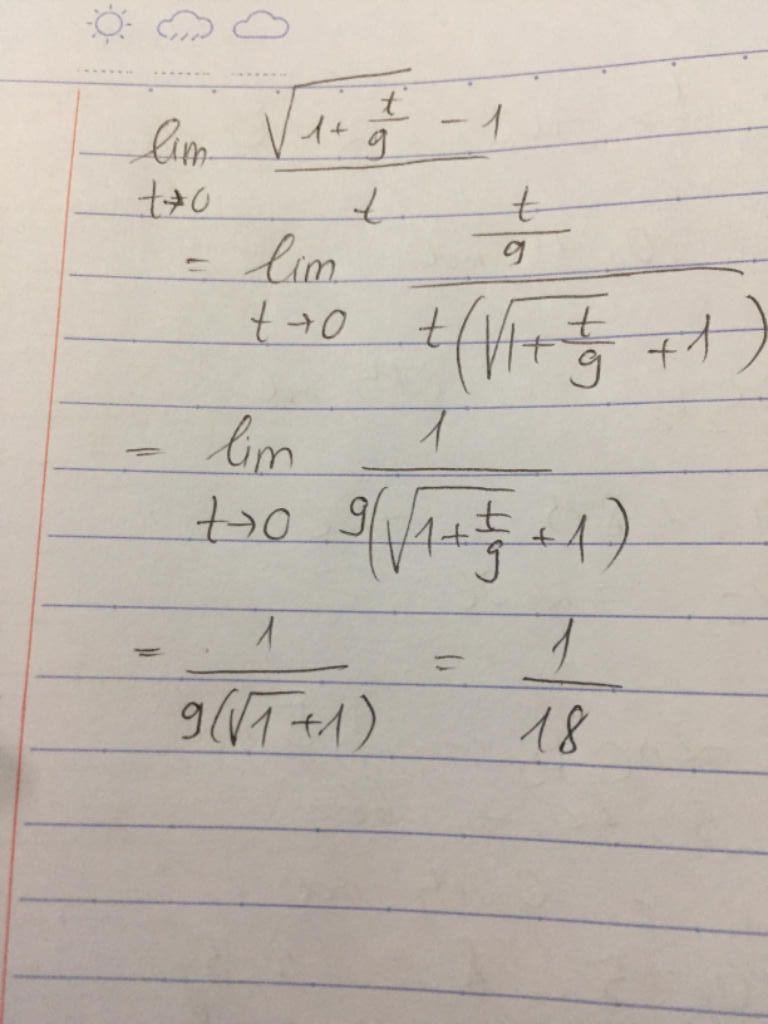 lim t→0 (√(1 + t/9) - 1) / t
= lim t→0 (t/9) / (t(√(1 + t/9) + 1))
= lim t→0 1 / (9(√(1 + t/9) + 1))
= 1 / (9(√1 + 1)) = 1/18